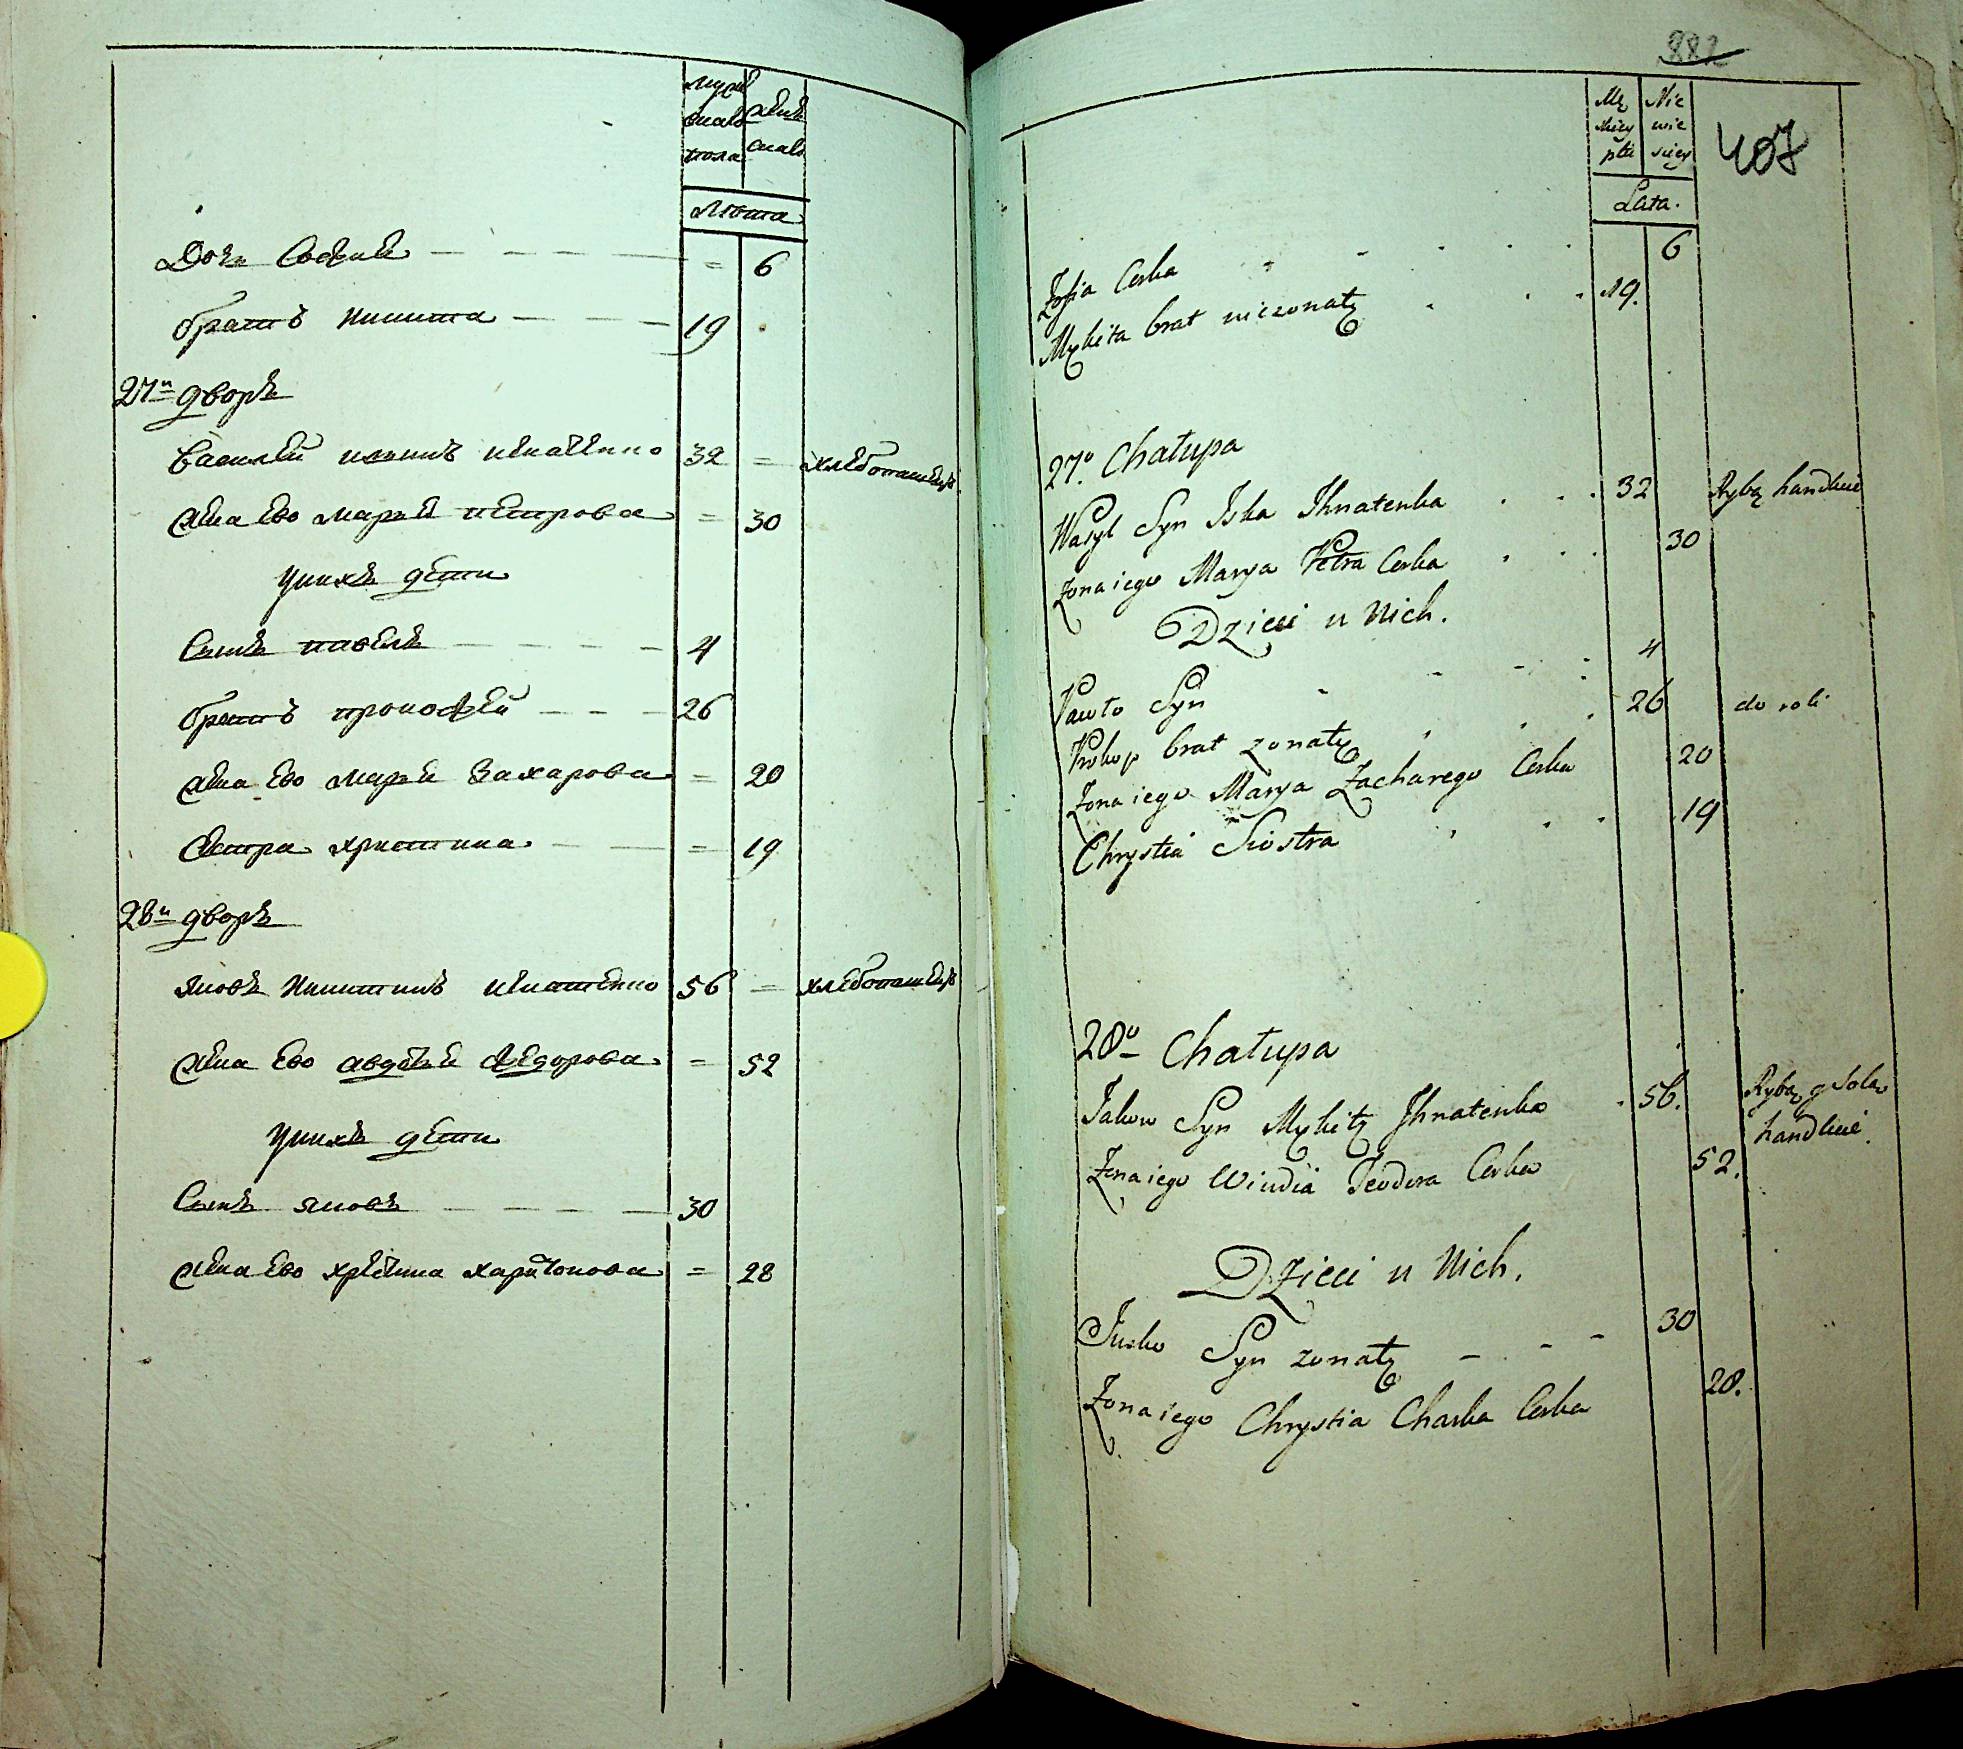 мужеска пола
женска
Лѣта
Дочь София — — — — = 6
братъ никита — — — 19
27й дворъ
Василей исаинъ игнатенко 32 = хлѣбопашецъ
жена ево марья петрова = 30
у них дѣти
Сынъ павелъ — — — — 4
братъ прокофей — — — 26
жена ево марья Захарова = 20
Сестра христина — — = 19
28й дворъ
яковъ Никитинъ игнатенко 56 = хлѣбопашецъ
жена ево авдотья Федорова = 52
у них дѣти
Сынъ яковъ — — — — 30
жена ево христина харитонова = 28
882
407
Męskiey płci
Niewieściey
Lata.
Zofia Corka 6
Mykita brat niezonaty 19.
27o. Chałupa
Wasyl Syn Iska Ihnatenka 32 Rybą handluie
Zona iego Marya Petra Corka 30
Dzieci u Nich.
Pawło Syn 4
Prokop brat zonaty 26 do roli
Zona iego Marya Zacharego Corka 20
Chrystia Siostra 19
28o Chałupa
Jakow Syn Mykity Ihnatenko 56. Rybą y Solą
handluie.
Zona iego Wiudia Teodora Corka 52.
Dzieci u Nich.
Jusko Syn zonaty — — — 30
Zona iego Chrystia Charka Corka 28.